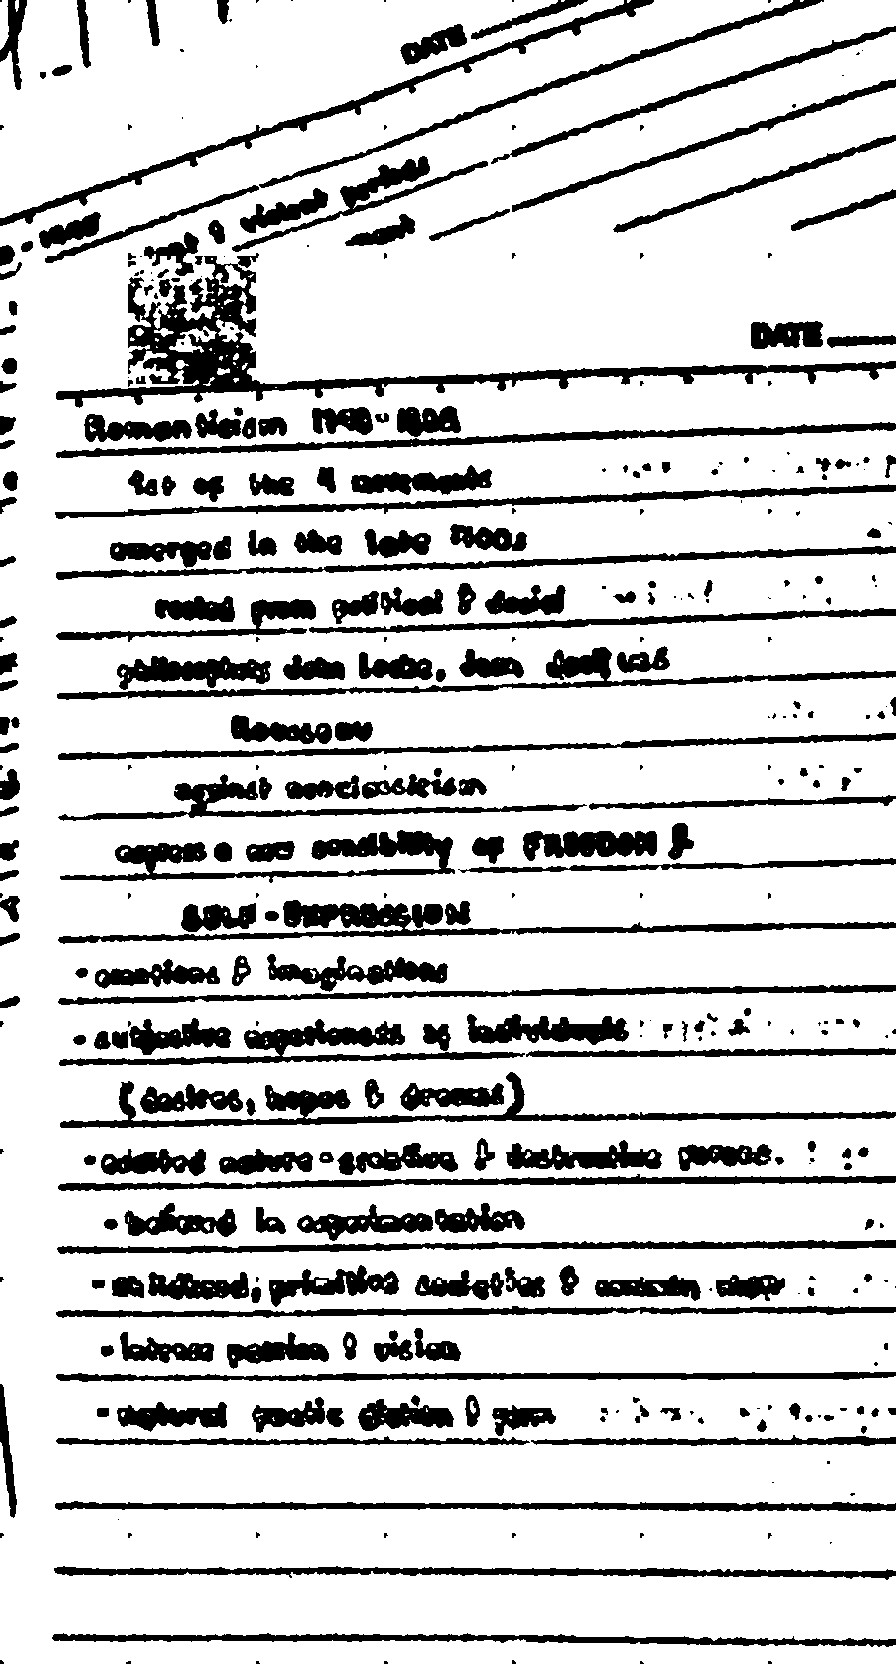 DATE
violent periods
DATE
Romanticism
1st of the 4 movements
emerged in the late 1700s
rooted from political & social
philosophers John Locke, Jean
Rousseau
against neoclassicism
express a new sensibility of FREEDOM &
SELF-EXPRESSION
• emotions & imaginations
• subjective experiences of individuals
(desires, hopes & dreams)
• nature - creative & destructive powers.
• believed in experimentation
• primitive societies & common
• intense passion & vision
• natural poetic diction & form